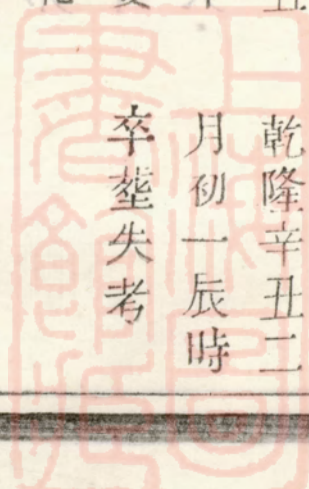 乾隆辛丑二
月初一辰時
卒塟失考